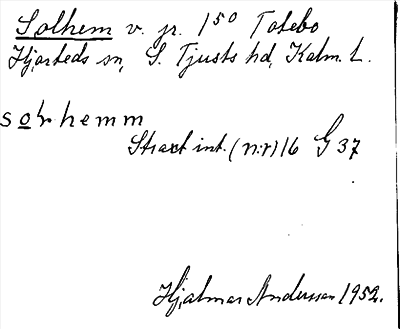 Solhem v. jr. 1⁵⁰ Totebo
Hjorteds sn, S. Tjusts hd, Kalm. L.
solhemm
Straxt int. (nr) 16 G 37
Hjalmar Andersson 1952.